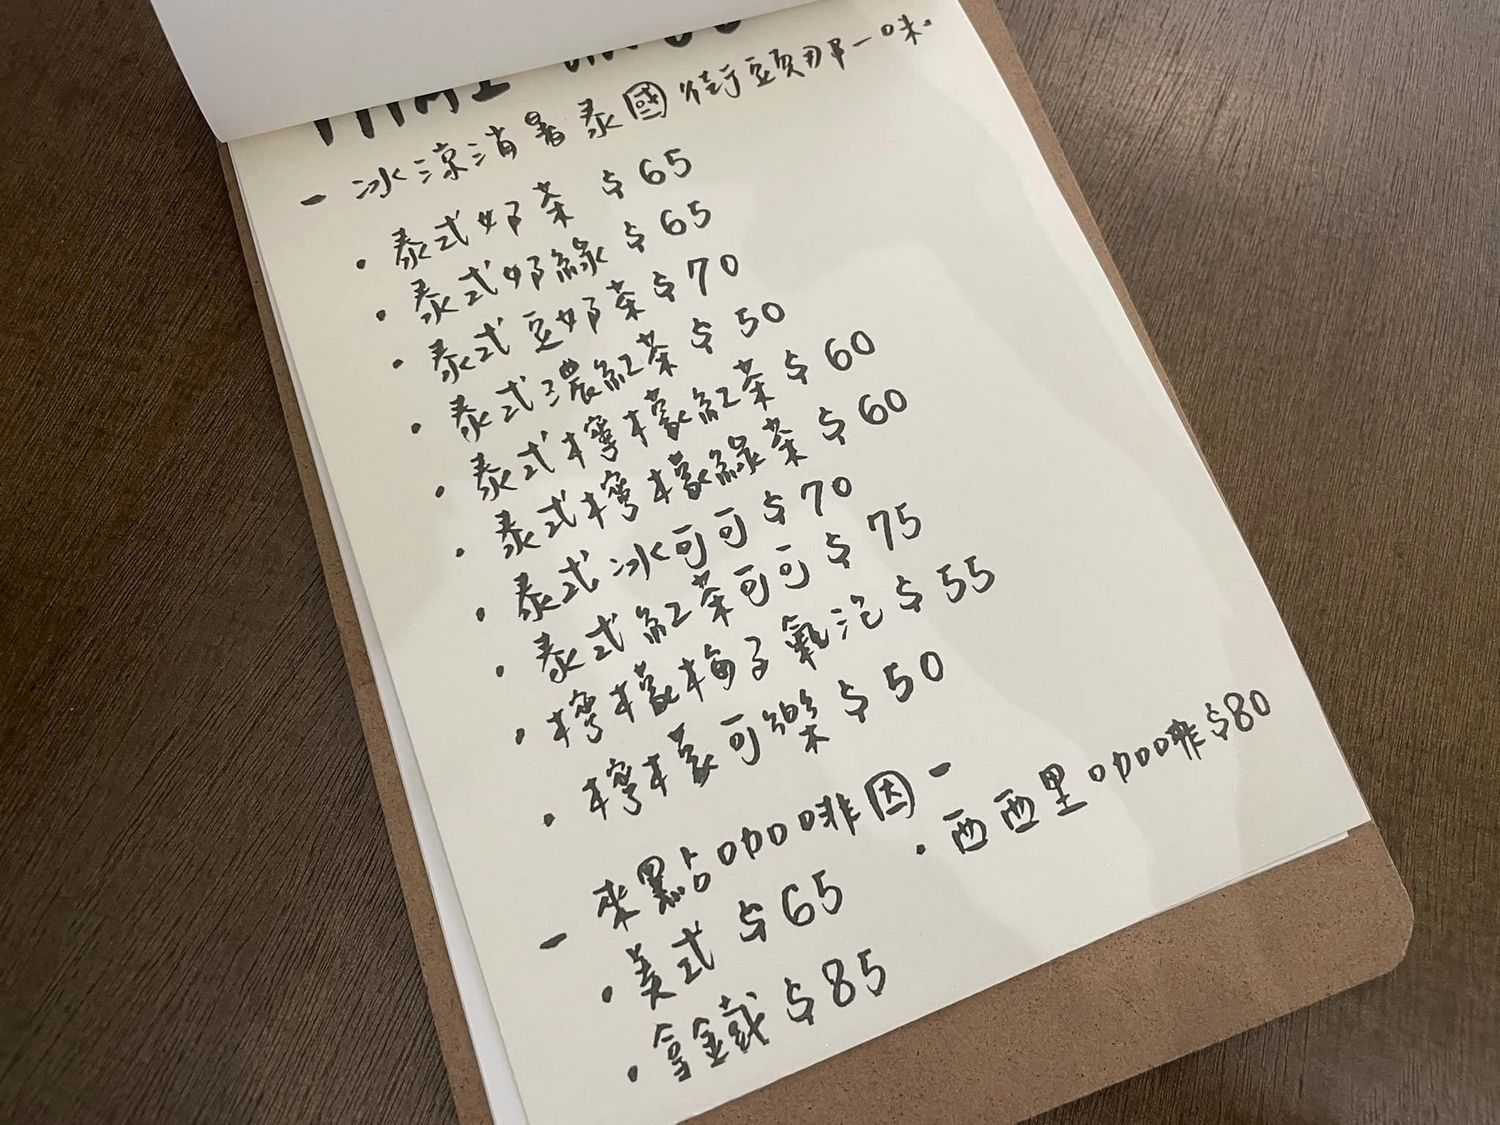 - 冰涼消暑泰國街頭那一味.
· 泰式奶茶 $65
· 泰式奶綠 $65
· 泰式豆奶茶 $70
· 泰式濃紅茶 $50
· 泰式檸檬紅茶 $60
· 泰式檸檬綠茶 $60
· 泰式冰可可 $70
· 泰式紅茶可可 $75
· 檸檬梅子氣泡 $55
· 檸檬可樂 $50
- 來點咖啡因 -
· 美式 $65
· 西西里咖啡 $80
· 拿鐵 $85